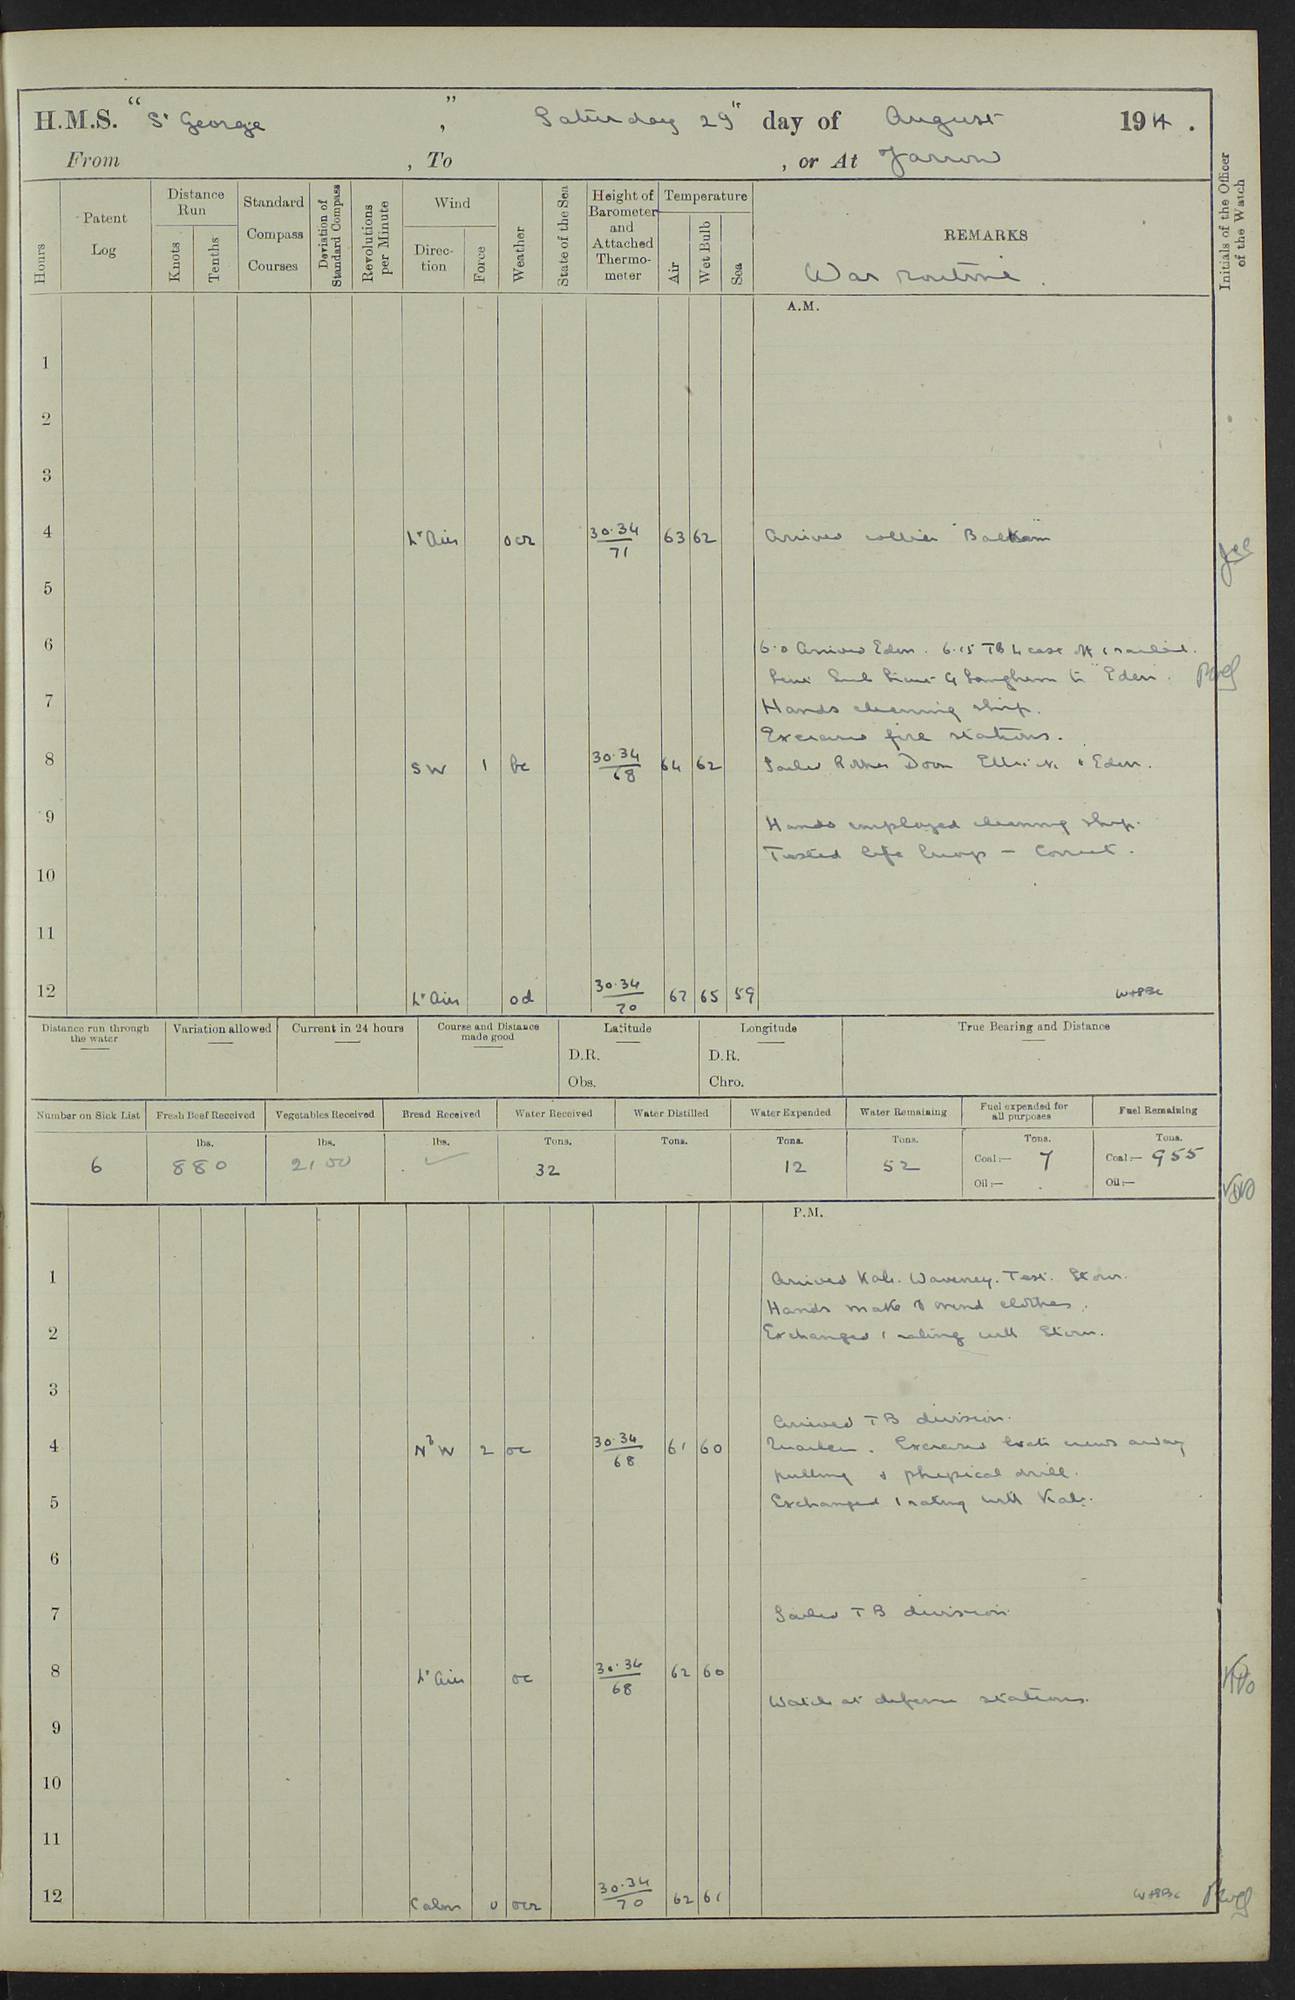 H.M.S. "St George", Saturday 29th day of August 1914.
From , To , or At Jarrow
Hours
Patent Log
Distance Run
Knots
Tenths
Standard Compass Courses
Deviation of Standard Compass
Revolutions per Minute
Wind
Direction
Force
Weather
State of the Sea
Height of Barometer and Attached Thermometer
Temperature
Air
Wet Bulb
Sea
REMARKS
War routine.
Initials of the Officer of the Watch
A.M.
1
2
3
4 Lt Airs ocr 30.34 71 63 62 Arrived collier "Balham"
5
6 6.0 Arrived Eden. 6.15 TB 4 cast off
Sent Sub Lieut to "Eden".
7 Hands cleaning ship.
Exercised fire stations.
8 SW 1 bc 30.34 68 64 62 Sailed Rother Doon Ettrick & Eden.
9 Hands employed cleaning ship.
Tested life buoys - Correct.
10
11
12 Lt Airs od 30.34 70 67 65 59
Distance run through the water
Variation allowed
Current in 24 hours
Course and Distance made good
Latitude
D.R.
Obs.
Longitude
D.R.
Chro.
True Bearing and Distance
Number on Sick List
Fresh Beef Received
Vegetables Received
Bread Received
Water Received
Water Distilled
Water Expended
Water Remaining
Fuel expended for all purposes
Fuel Remaining
lbs. lbs. lbs. Tons. Tons. Tons. Tons. Tons. Tons.
6 880 2100 32 12 52 Coal:— 7 Coal:— 955
Oil:— Oil:—
P.M.
1 Arrived Kale. Waveney. Test. Stour.
Hands make & mend clothes.
2 Exchanged 1 rating with Stour.
3
Arrived TB division.
4 NbW 2 oc 30.34 68 61 60 Quarters. Exercised boats crews away
pulling & physical drill.
5 Exchanged 1 rating with Kale.
6
7 Sailed TB division
8 Lt Airs oc 30.34 68 62 60
Watch at defence stations.
9
10
11
12 Calm 0 ocr 30.34 70 62 61